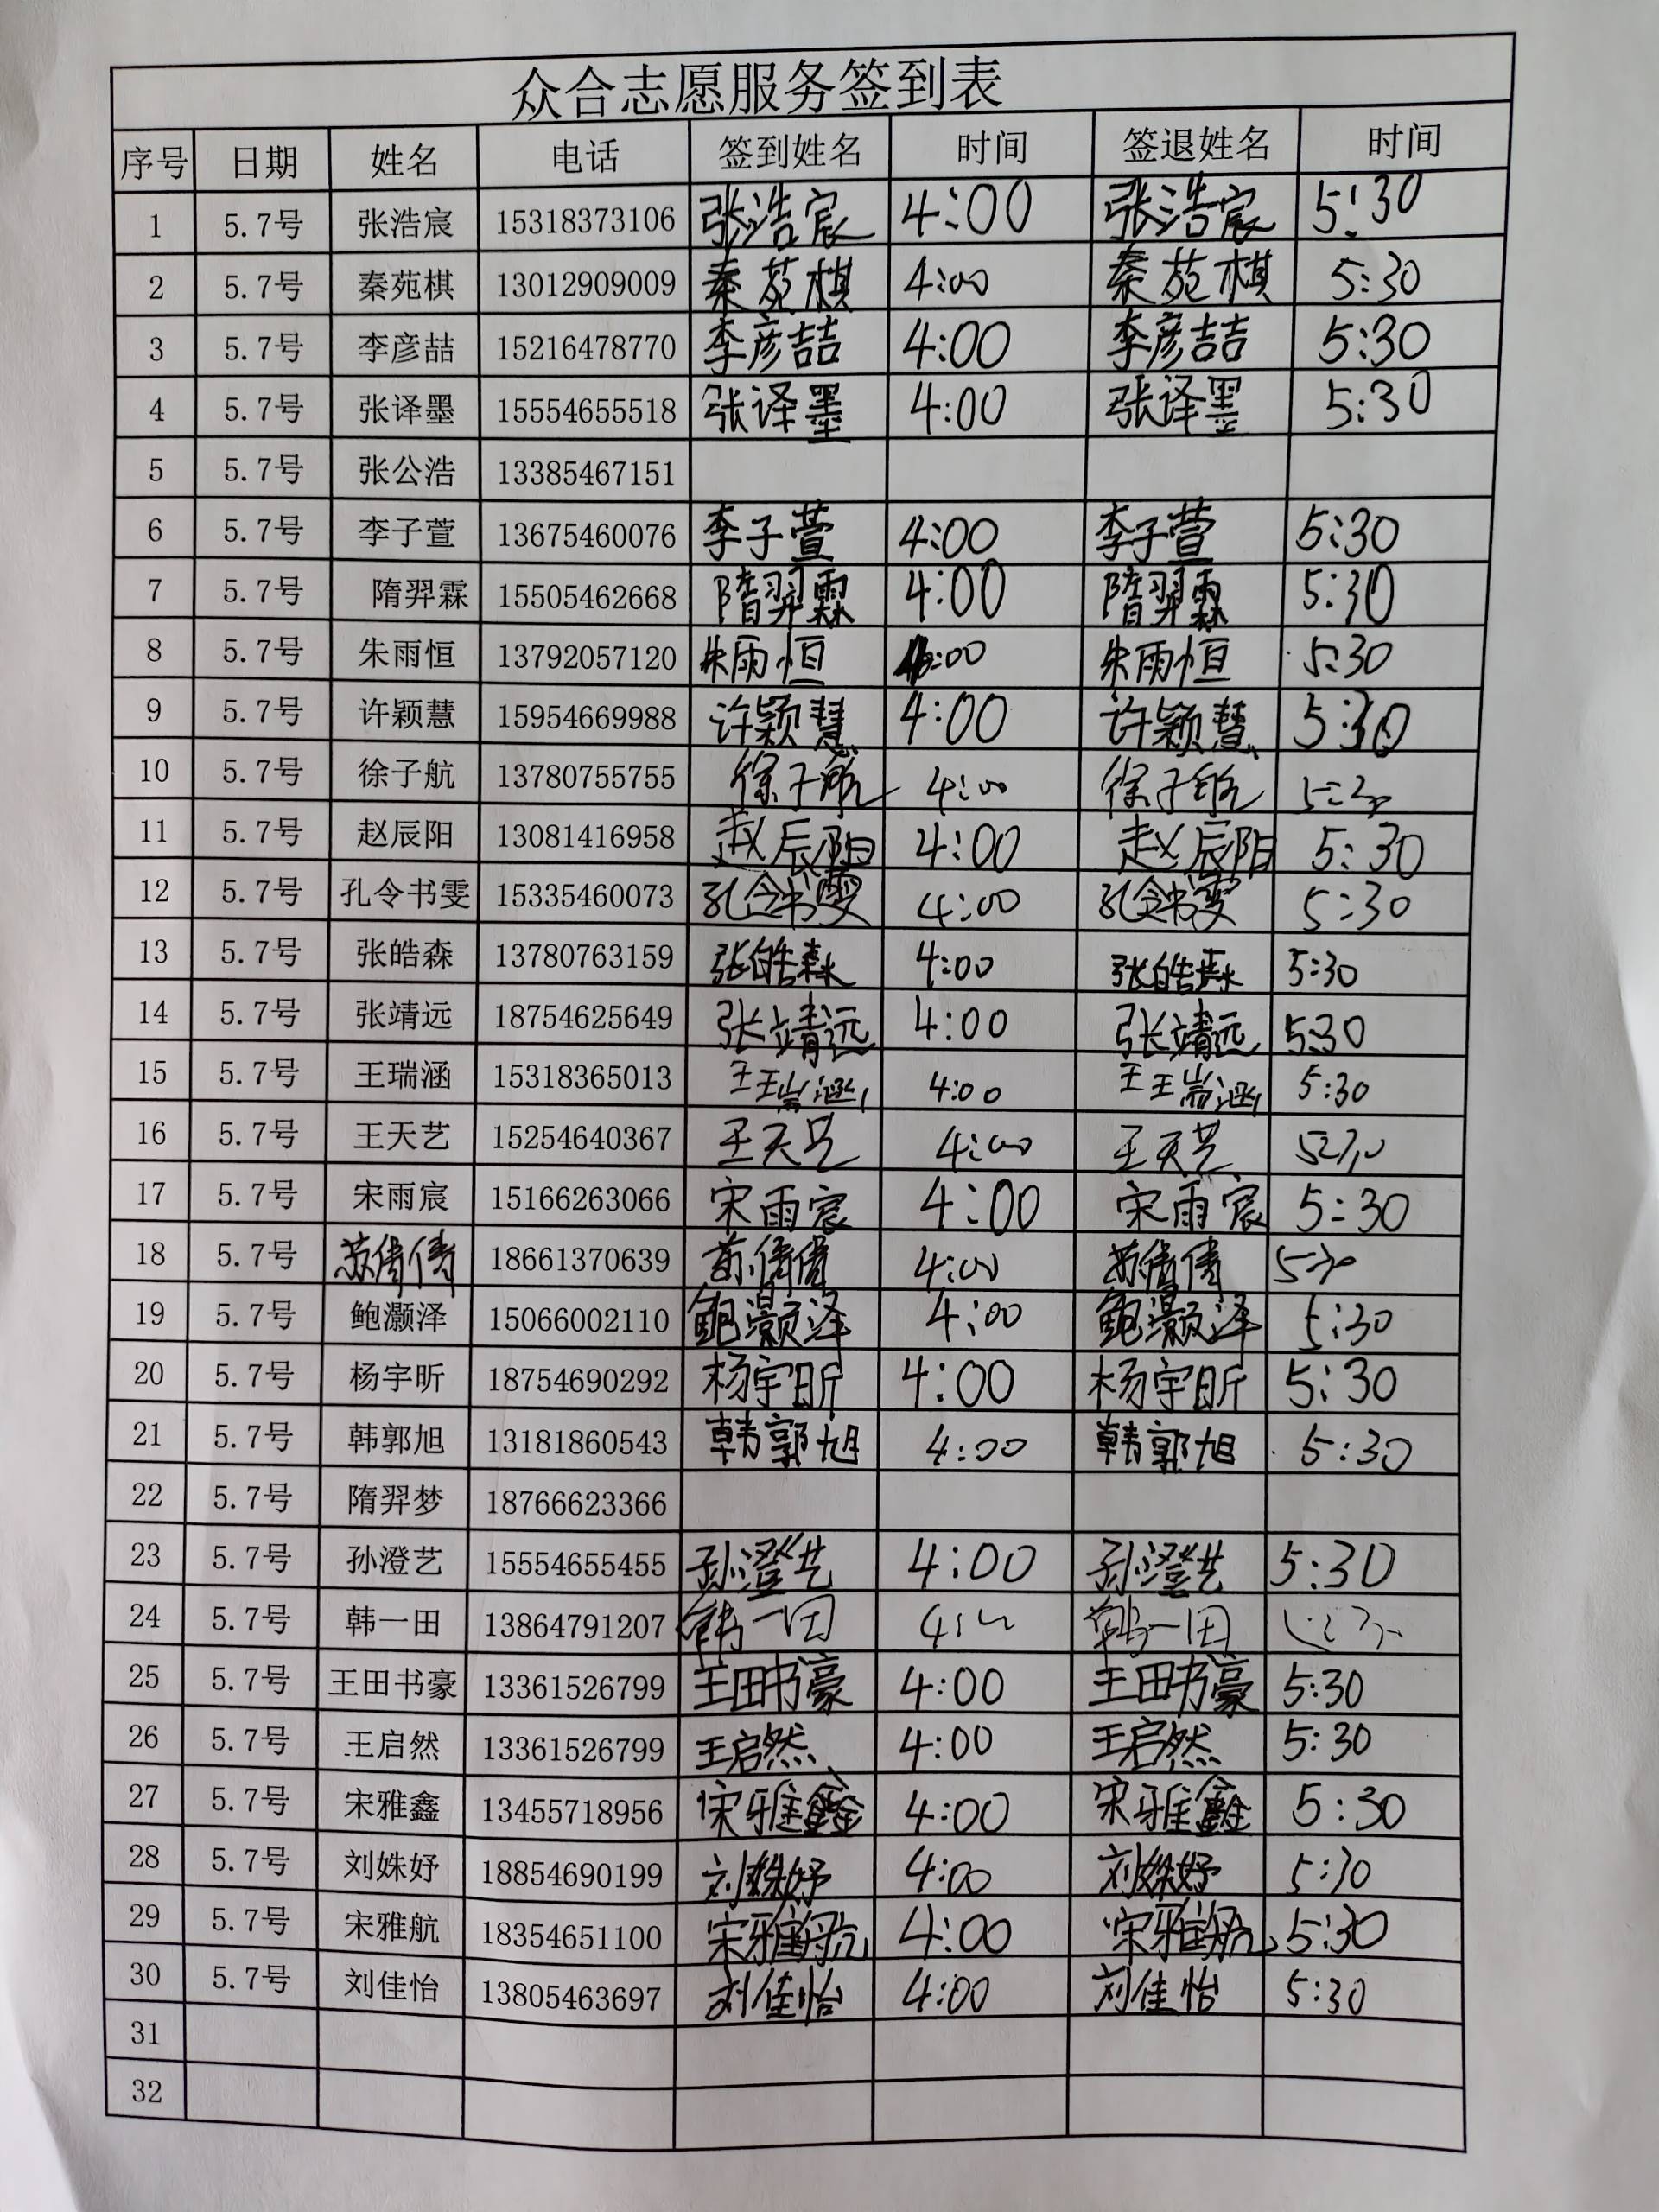 众合志愿服务签到表
序号 日期 姓名 电话 签到姓名 时间 签退姓名 时间
1 5.7号 张浩宸 15318373106 张浩宸 4:00 张浩宸 5:30
2 5.7号 秦苑棋 13012909009 秦苑棋 4:00 秦苑棋 5:30
3 5.7号 李彦喆 15216478770 李彦喆 4:00 李彦喆 5:30
4 5.7号 张译墨 15554655518 张译墨 4:00 张译墨 5:30
5 5.7号 张公浩 13385467151
6 5.7号 李子萱 13675460076 李子萱 4:00 李子萱 5:30
7 5.7号 隋羿霖 15505462668 隋羿霖 4:00 隋羿霖 5:30
8 5.7号 朱雨恒 13792057120 朱雨恒 4:00 朱雨恒 5:30
9 5.7号 许颖慧 15954669988 许颖慧 4:00 许颖慧 5:30
10 5.7号 徐子航 13780755755 徐子航 4:00 徐子航 5:30
11 5.7号 赵辰阳 13081416958 赵辰阳 4:00 赵辰阳 5:30
12 5.7号 孔令书雯 15335460073 孔令书雯 4:00 孔令书雯 5:30
13 5.7号 张皓森 13780763159 张皓森 4:00 张皓森 5:30
14 5.7号 张靖远 18754625649 张靖远 4:00 张靖远 5:30
15 5.7号 王瑞涵 15318365013 王瑞涵 4:00 王瑞涵 5:30
16 5.7号 王天艺 15254640367 王天艺 4:00 王天艺 5:30
17 5.7号 宋雨宸 15166263066 宋雨宸 4:00 宋雨宸 5:30
18 5.7号 苏倩倩 18661370639 苏倩倩 4:00 苏倩倩 5:30
19 5.7号 鲍灏泽 15066002110 鲍灏泽 4:00 鲍灏泽 5:30
20 5.7号 杨宇昕 18754690292 杨宇昕 4:00 杨宇昕 5:30
21 5.7号 韩郭旭 13181860543 韩郭旭 4:00 韩郭旭 5:30
22 5.7号 隋羿梦 18766623366
23 5.7号 孙澄艺 15554655455 孙澄艺 4:00 孙澄艺 5:30
24 5.7号 韩一田 13864791207 韩一田 韩一田
25 5.7号 王田书豪 13361526799 王田书豪 4:00 王田书豪 5:30
26 5.7号 王启然 13361526799 王启然 4:00 王启然 5:30
27 5.7号 宋雅鑫 13455718956 宋雅鑫 4:00 宋雅鑫 5:30
28 5.7号 刘姝妤 18854690199 刘姝妤 4:00 刘姝妤 5:30
29 5.7号 宋雅航 18354651100 宋雅航 4:00 宋雅航 5:30
30 5.7号 刘佳怡 13805463697 刘佳怡 4:00 刘佳怡 5:30
31
32